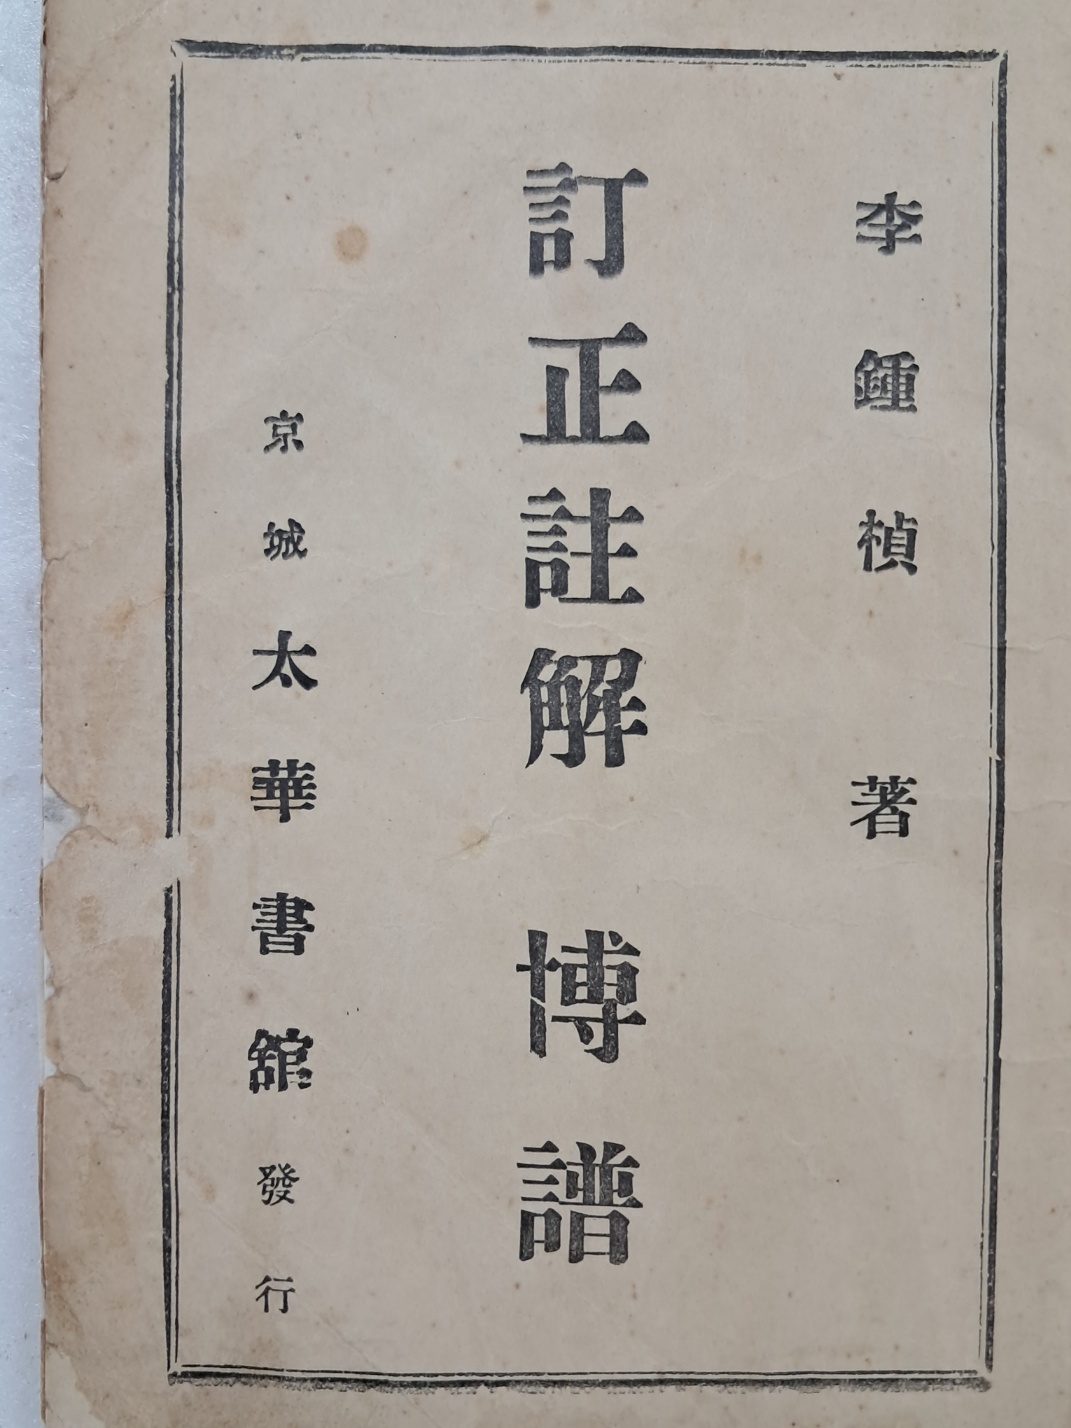 李鍾楨 著
訂正註解 博譜
京城 太華書館 發行